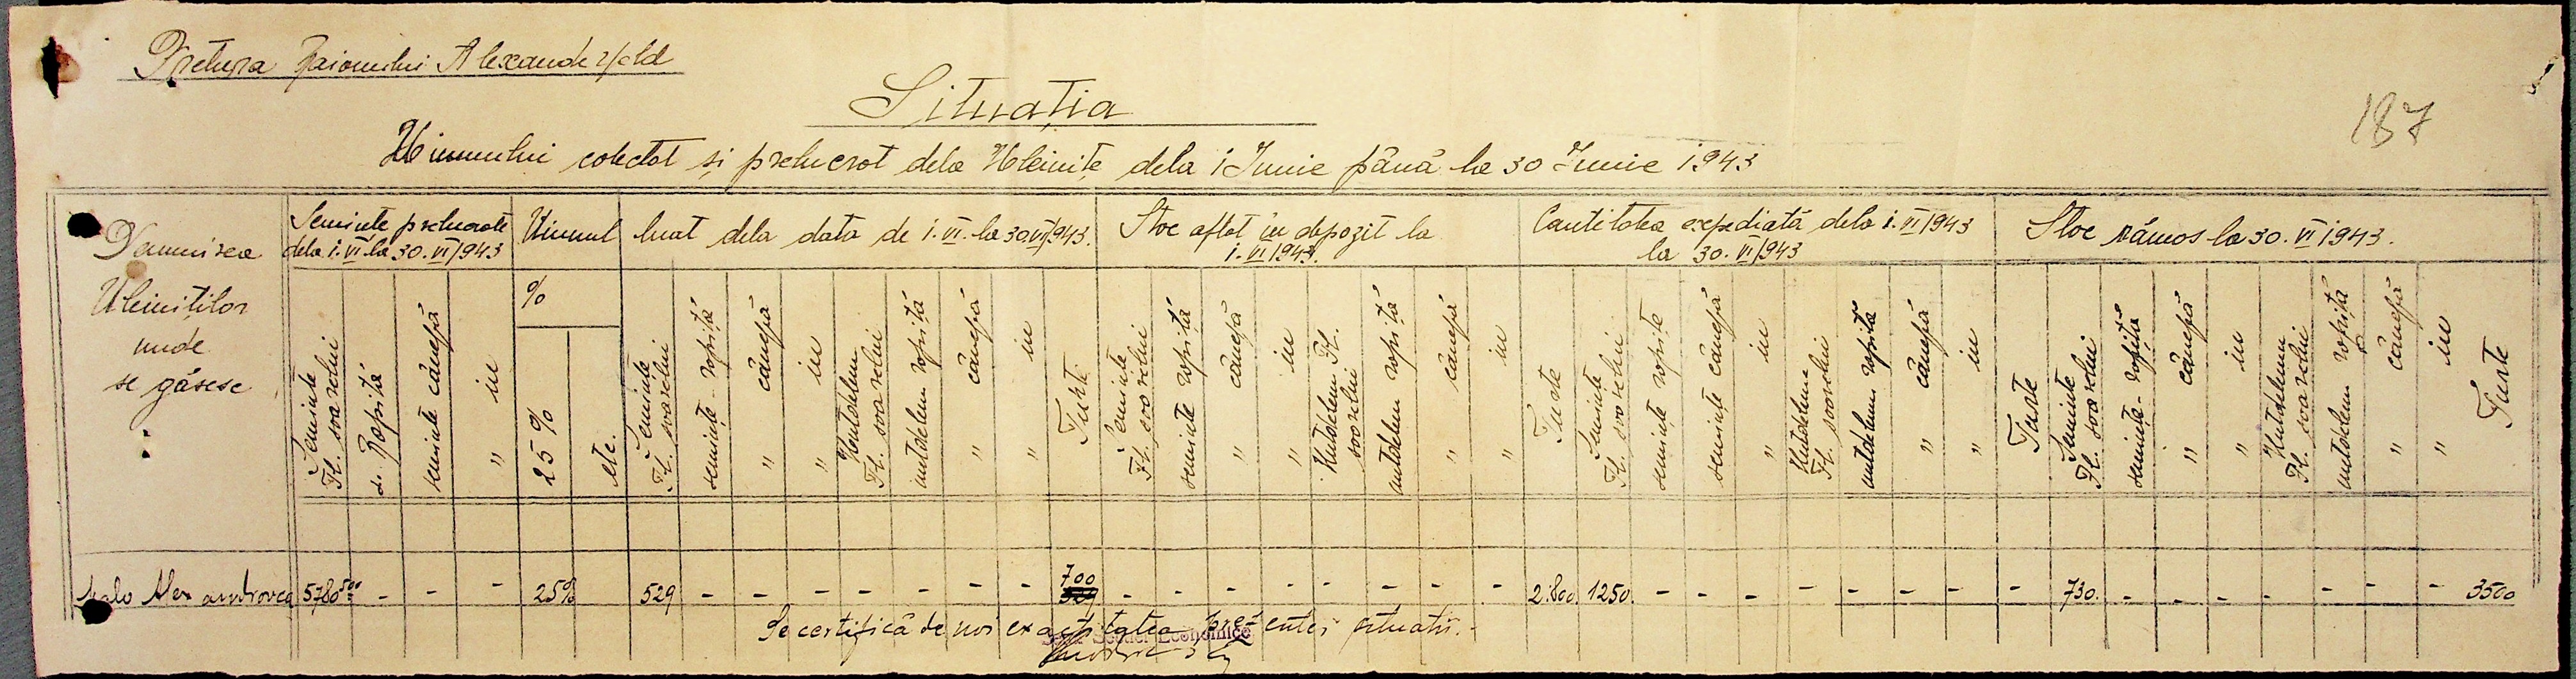 Pretura Raionului Alexanderfeld
Situația
187
Uiumului colectat și prelucrat dela Uleinițe dela 1 Iunie până la 30 Iunie 1943
Denumirea Uleinițelor unde se găsesc
Semințe prelucrate dela 1.VI la 30.VI/943
Uiumul luat dela data de 1.VI. la 30 VI/943.
Stoc aflat în depozit la 1.VI/943.
Cantitatea expediată dela 1.VI/943 la 30.VI/943
Stoc rămas la 30.VI 1943.
Semințe Fl. soarelui
s. Rapiță
semințe cânepă
" in
%
25%
etc.
Semințe Fl. soarelui
semințe rapiță
" cânepă
" in
Untdelemn Fl. soarelui
untdelemn rapiță
" cânepă
" in
Turte
Semințe Fl. soarelui
semințe rapiță
" cânepă
" in
Untdelemn Fl. soarelui
untdelemn rapiță
" cânepă
" in
Turte
Semințe Fl. soarelui
semințe rapiță
semințe cânepă
" in
Untdelemn Fl. soarelui
untdelemn rapiță
" cânepă
" in
Turte
Semințe Fl. soarelui
semințe rapiță
" cânepă
" in
Untdelemn Fl. soarelui
untdelemn rapiță
" cânepă
" in
Turte
Malo Alexandrovca 5780500 - - - 25% 529 - - - - - - - 700 - - - - - - - - 2.800. 1250. - - - - - - - - 730. - - - - - - - 3500
Se certifică de noi exactitatea prezentei situații.
Economice